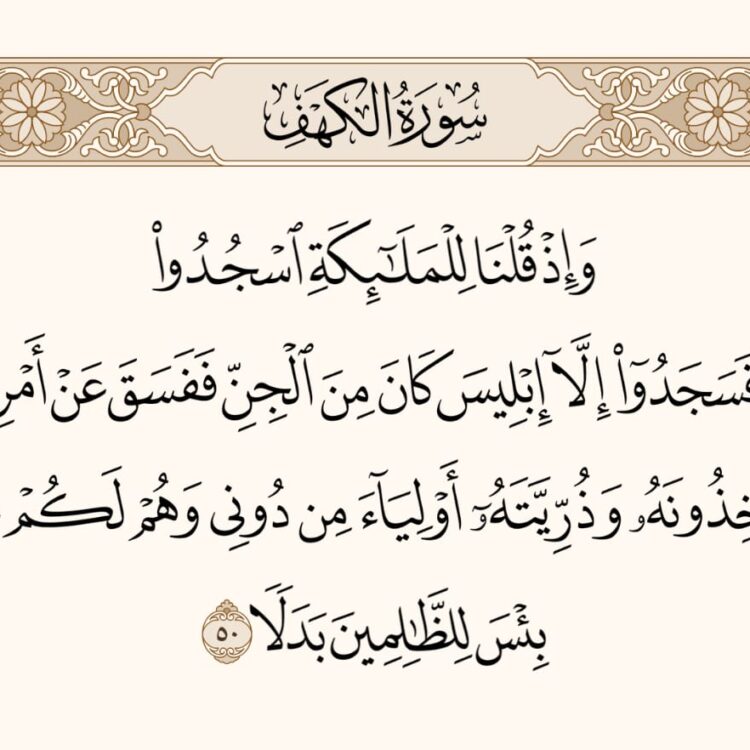 سُورَةُ الكَهْفِ
وَإِذْ قُلْنَا لِلْمَلَٰٓئِكَةِ ٱسْجُدُوا۟
فَسَجَدُوٓا۟ إِلَّآ إِبْلِيسَ كَانَ مِنَ ٱلْجِنِّ فَفَسَقَ عَنْ أَمْرِ
خِذُونَهُۥ وَذُرِّيَّتَهُۥٓ أَوْلِيَآءَ مِن دُونِى وَهُمْ لَكُمْ
بِئْسَ لِلظَّٰلِمِينَ بَدَلًا ٥٠